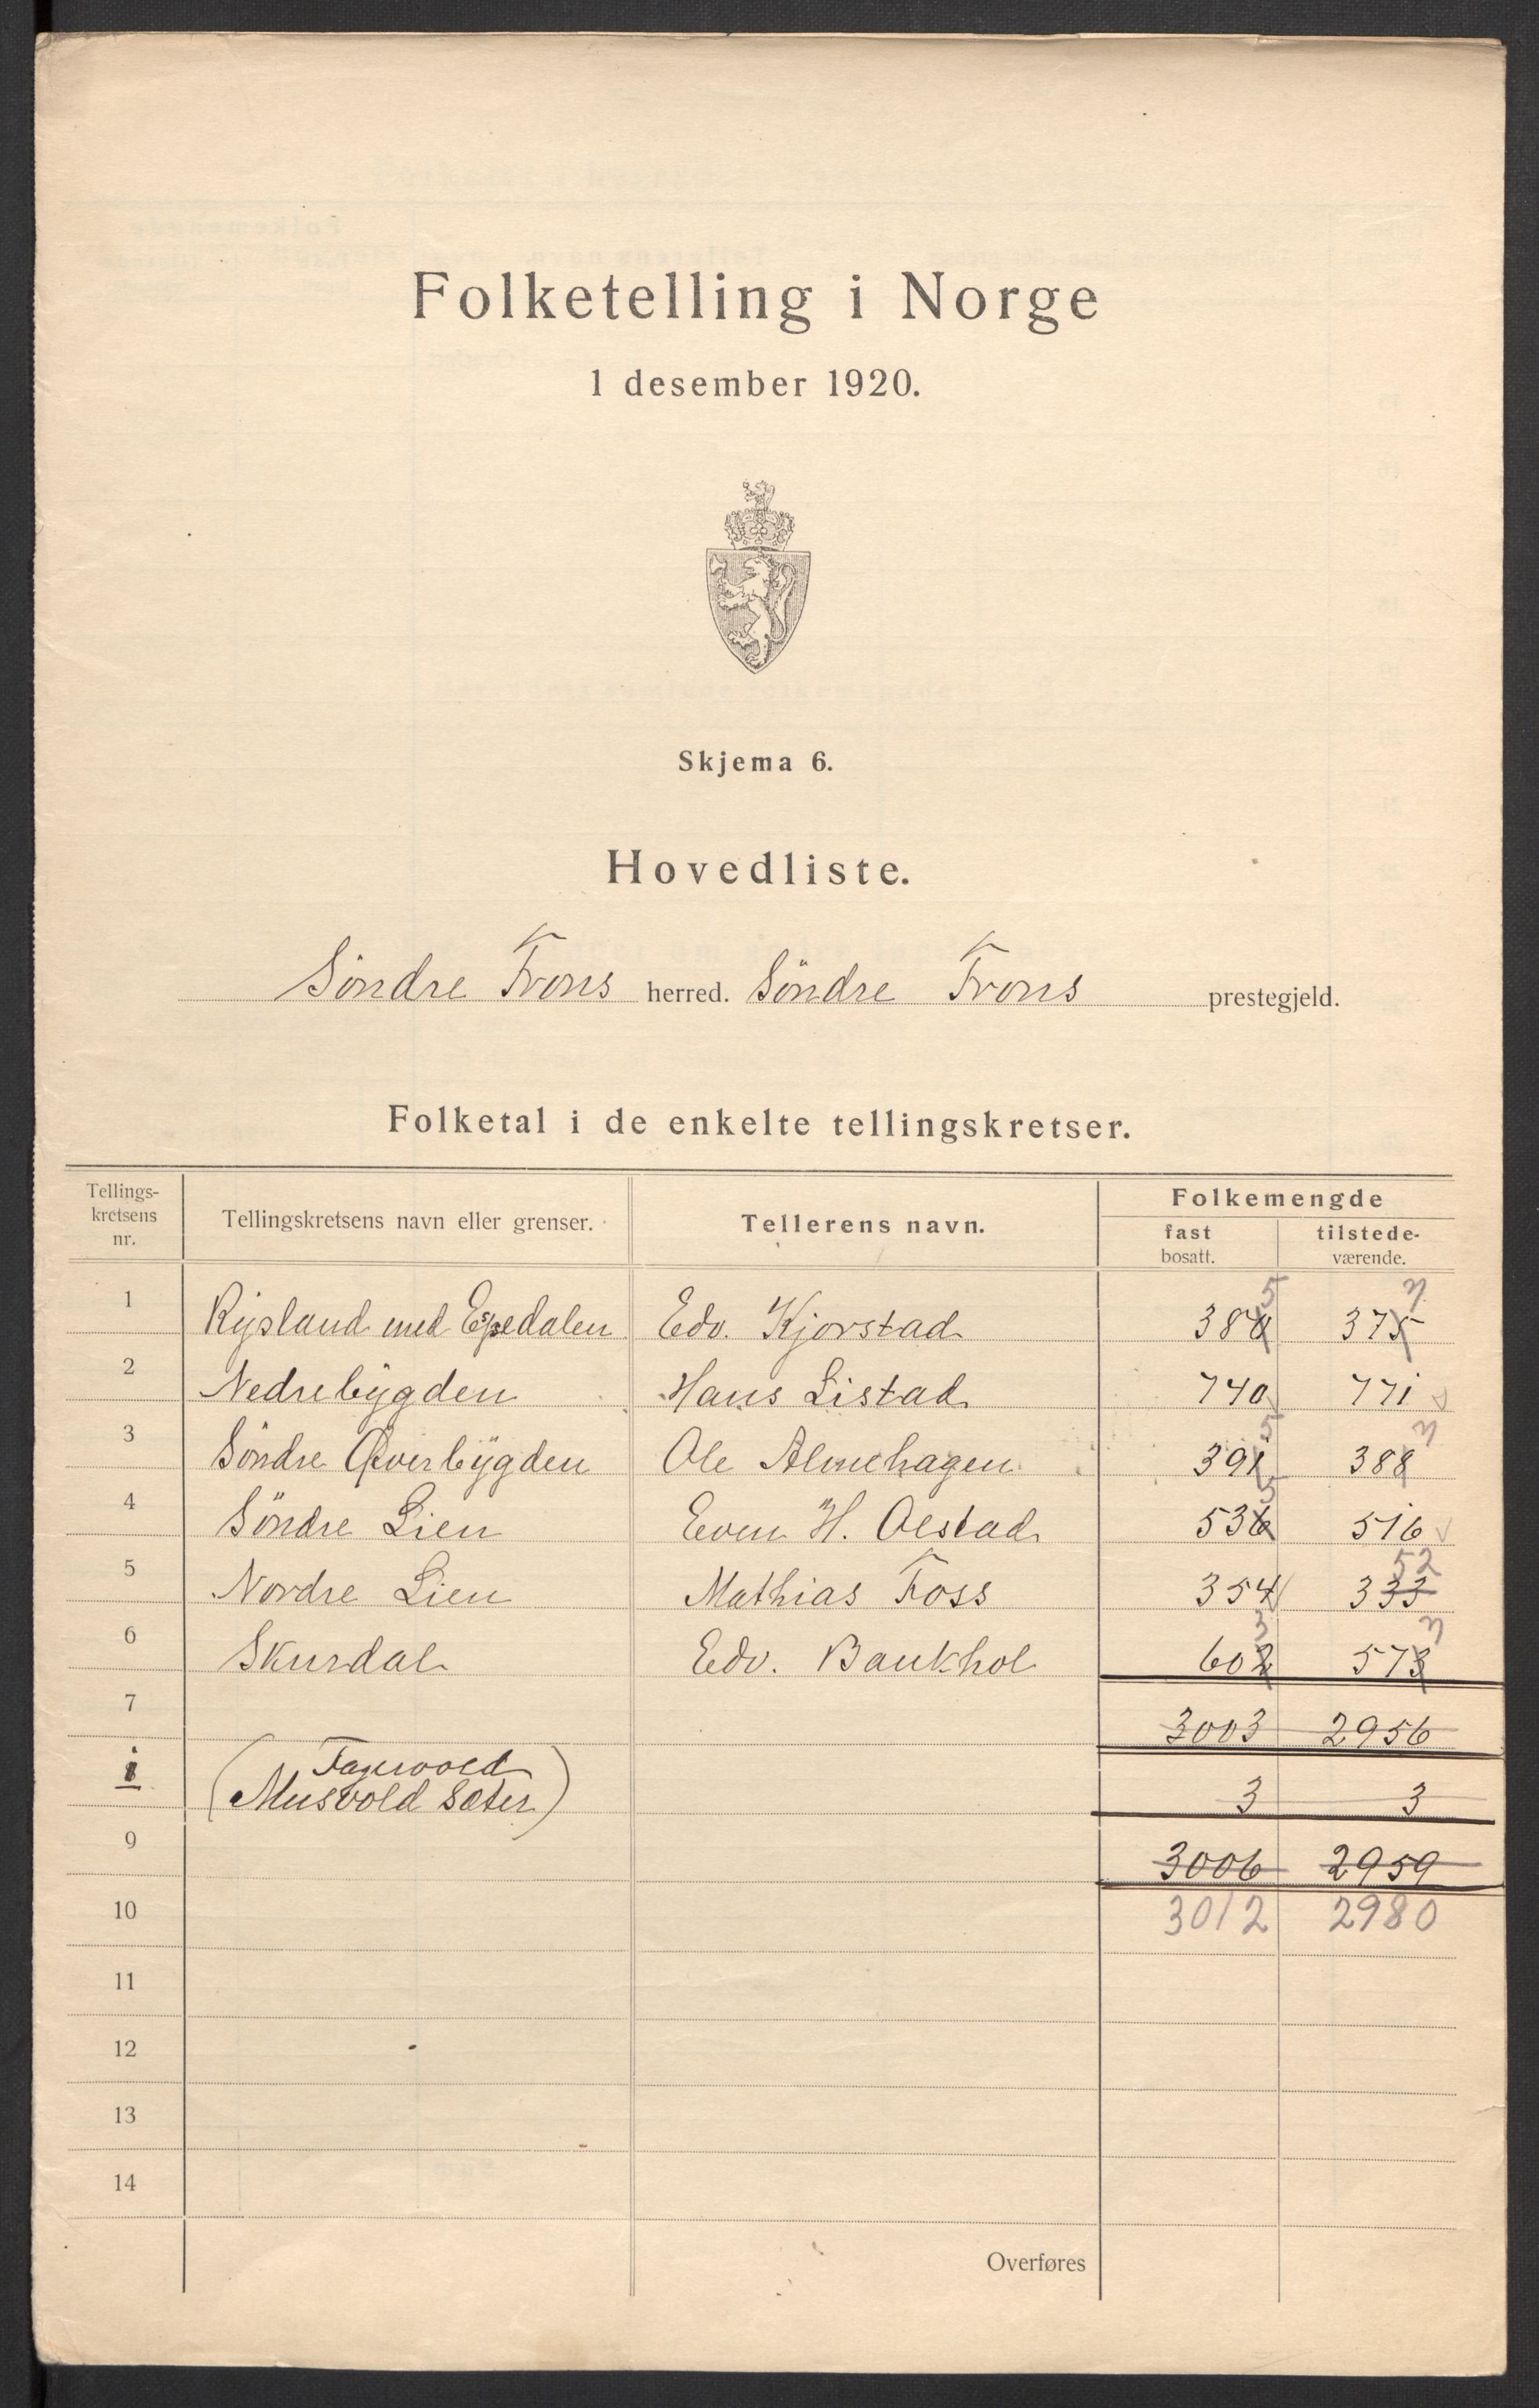 Folketelling i Norge
1 desember 1920.
Skjema 6.
Hovedliste.
Söndre Frons herred. Söndre Frons prestegjeld.
Folketal i de enkelte tellingskretser.
Tellings-
kretsens
nr.
Tellingskretsens navn eller grenser.
Tellerens navn.
Folkemengde
fast
bosatt.
tilstede-
værende.
5 7
1 Rysland med Espedalen Edv. Kjorstad 380 375
2 Nedrebygden Hans Listad 740 771
5 7
3 Söndre Överbygden Ole Almehagen 391 388
5
4 Söndre Lien Even H. Olstad 536 516
52
5 Nordre Lien Mathias Foss 354 333
3 7
6 Skurdal Edv. Baukhol 602 573
7 3003 2956
i (Fagervold
Musvold Sæter) 3 3
9 3006 2959
10 3012 2980
11
12
13
14
Overføres